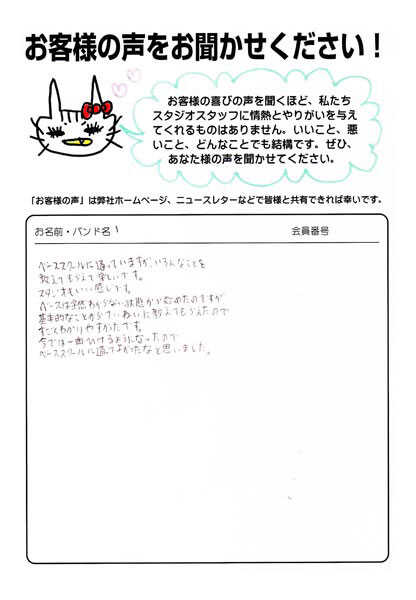 お客様の声をお聞かせください！
お客様の喜びの声を聞くほど、私たち
スタジオスタッフに情熱とやりがいを与え
てくれるものはありません。いいこと、悪
いこと、どんなことでも結構です。ぜひ、
あなた様の声を聞かせてください。
「お客様の声」は弊社ホームページ、ニュースレターなどで皆様と共有できれば幸いです。
お名前・バンド名
会員番号
ベーススクールに通っていますが、いろんなことを
教えてもらえて楽しいです。
スタジオもいい感じです。
ベースは全然わからない状態から始めたのですが
基本的なことからていねいに教えてもらえたので
すごくわかりやすかったです。
今では一曲ひけるようになったので
ベーススクールに通ってよかったなと思いました。